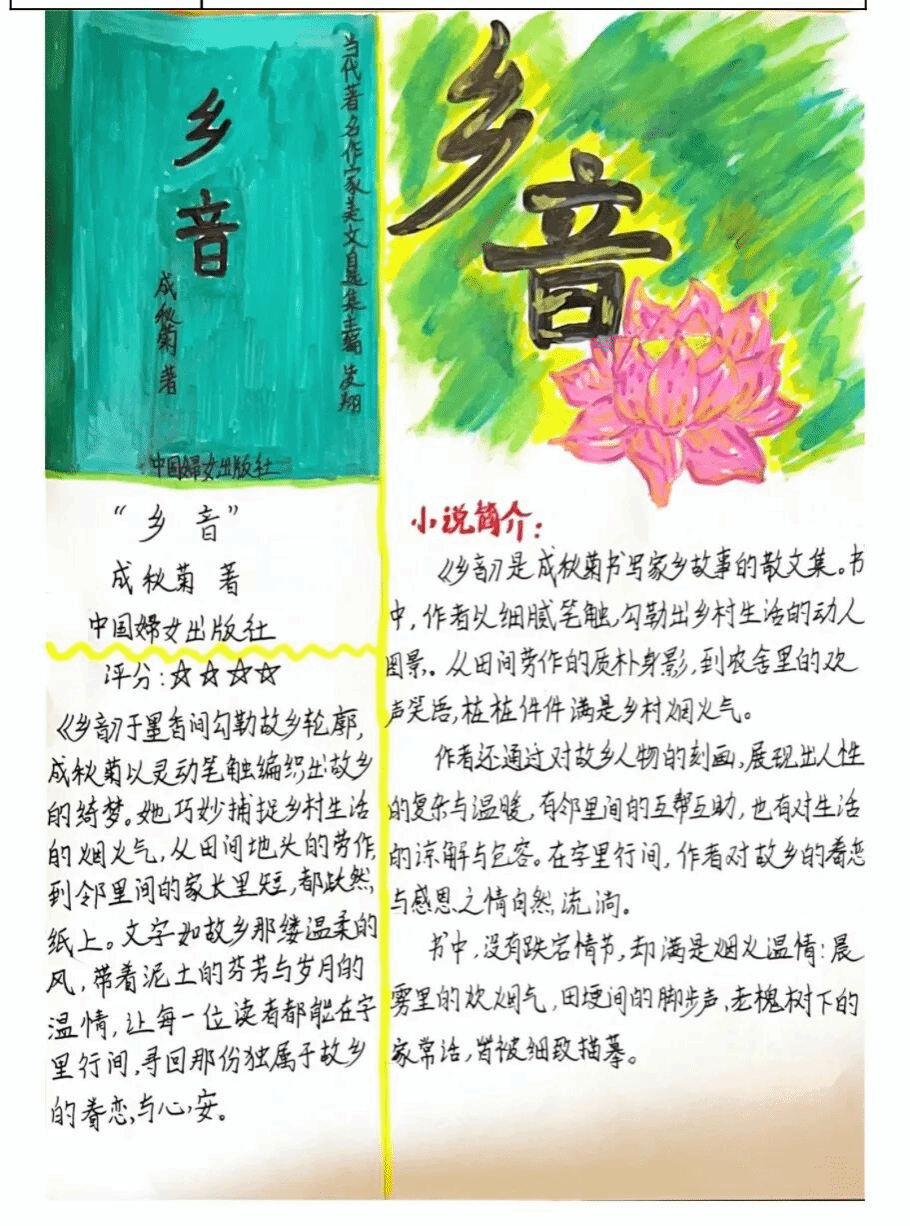 乡
音
成秋菊 著
当代著名作家美文自选集主编 凌翔
中国婦女出版社
乡
音
“乡 音”
成秋菊 著
中国婦女出版社
评分:☆☆☆☆
《乡音》于墨香间勾勒故乡轮廓,
成秋菊以灵动笔触编织出故乡
的绮梦。她巧妙捕捉乡村生活
的烟火气,从田间地头的劳作,
到邻里间的家长里短,都跃然
纸上。文字如故乡那缕温柔的
风,带着泥土的芬芳与岁月的
温情,让每一位读者都能在字
里行间,寻回那份独属于故乡
的眷恋,与心安。
小说简介:
《乡音》是成秋菊书写家乡故事的散文集。书
中,作者以细腻笔触,勾勒出乡村生活的动人
图景。从田间劳作的质朴身影,到农舍里的欢
声笑语,桩桩件件满是乡村烟火气。
作者还通过对故乡人物的刻画,展现出人性
的复杂与温暖,有邻里间的互帮互助,也有对生活
的谅解与包容。在字里行间,作者对故乡的眷恋
与感恩之情自然流淌。
书中,没有跌宕情节,却满是烟火温情:晨
雾里的炊烟气,田埂间的脚步声,老槐树下的
家常话,皆被细致描摹。